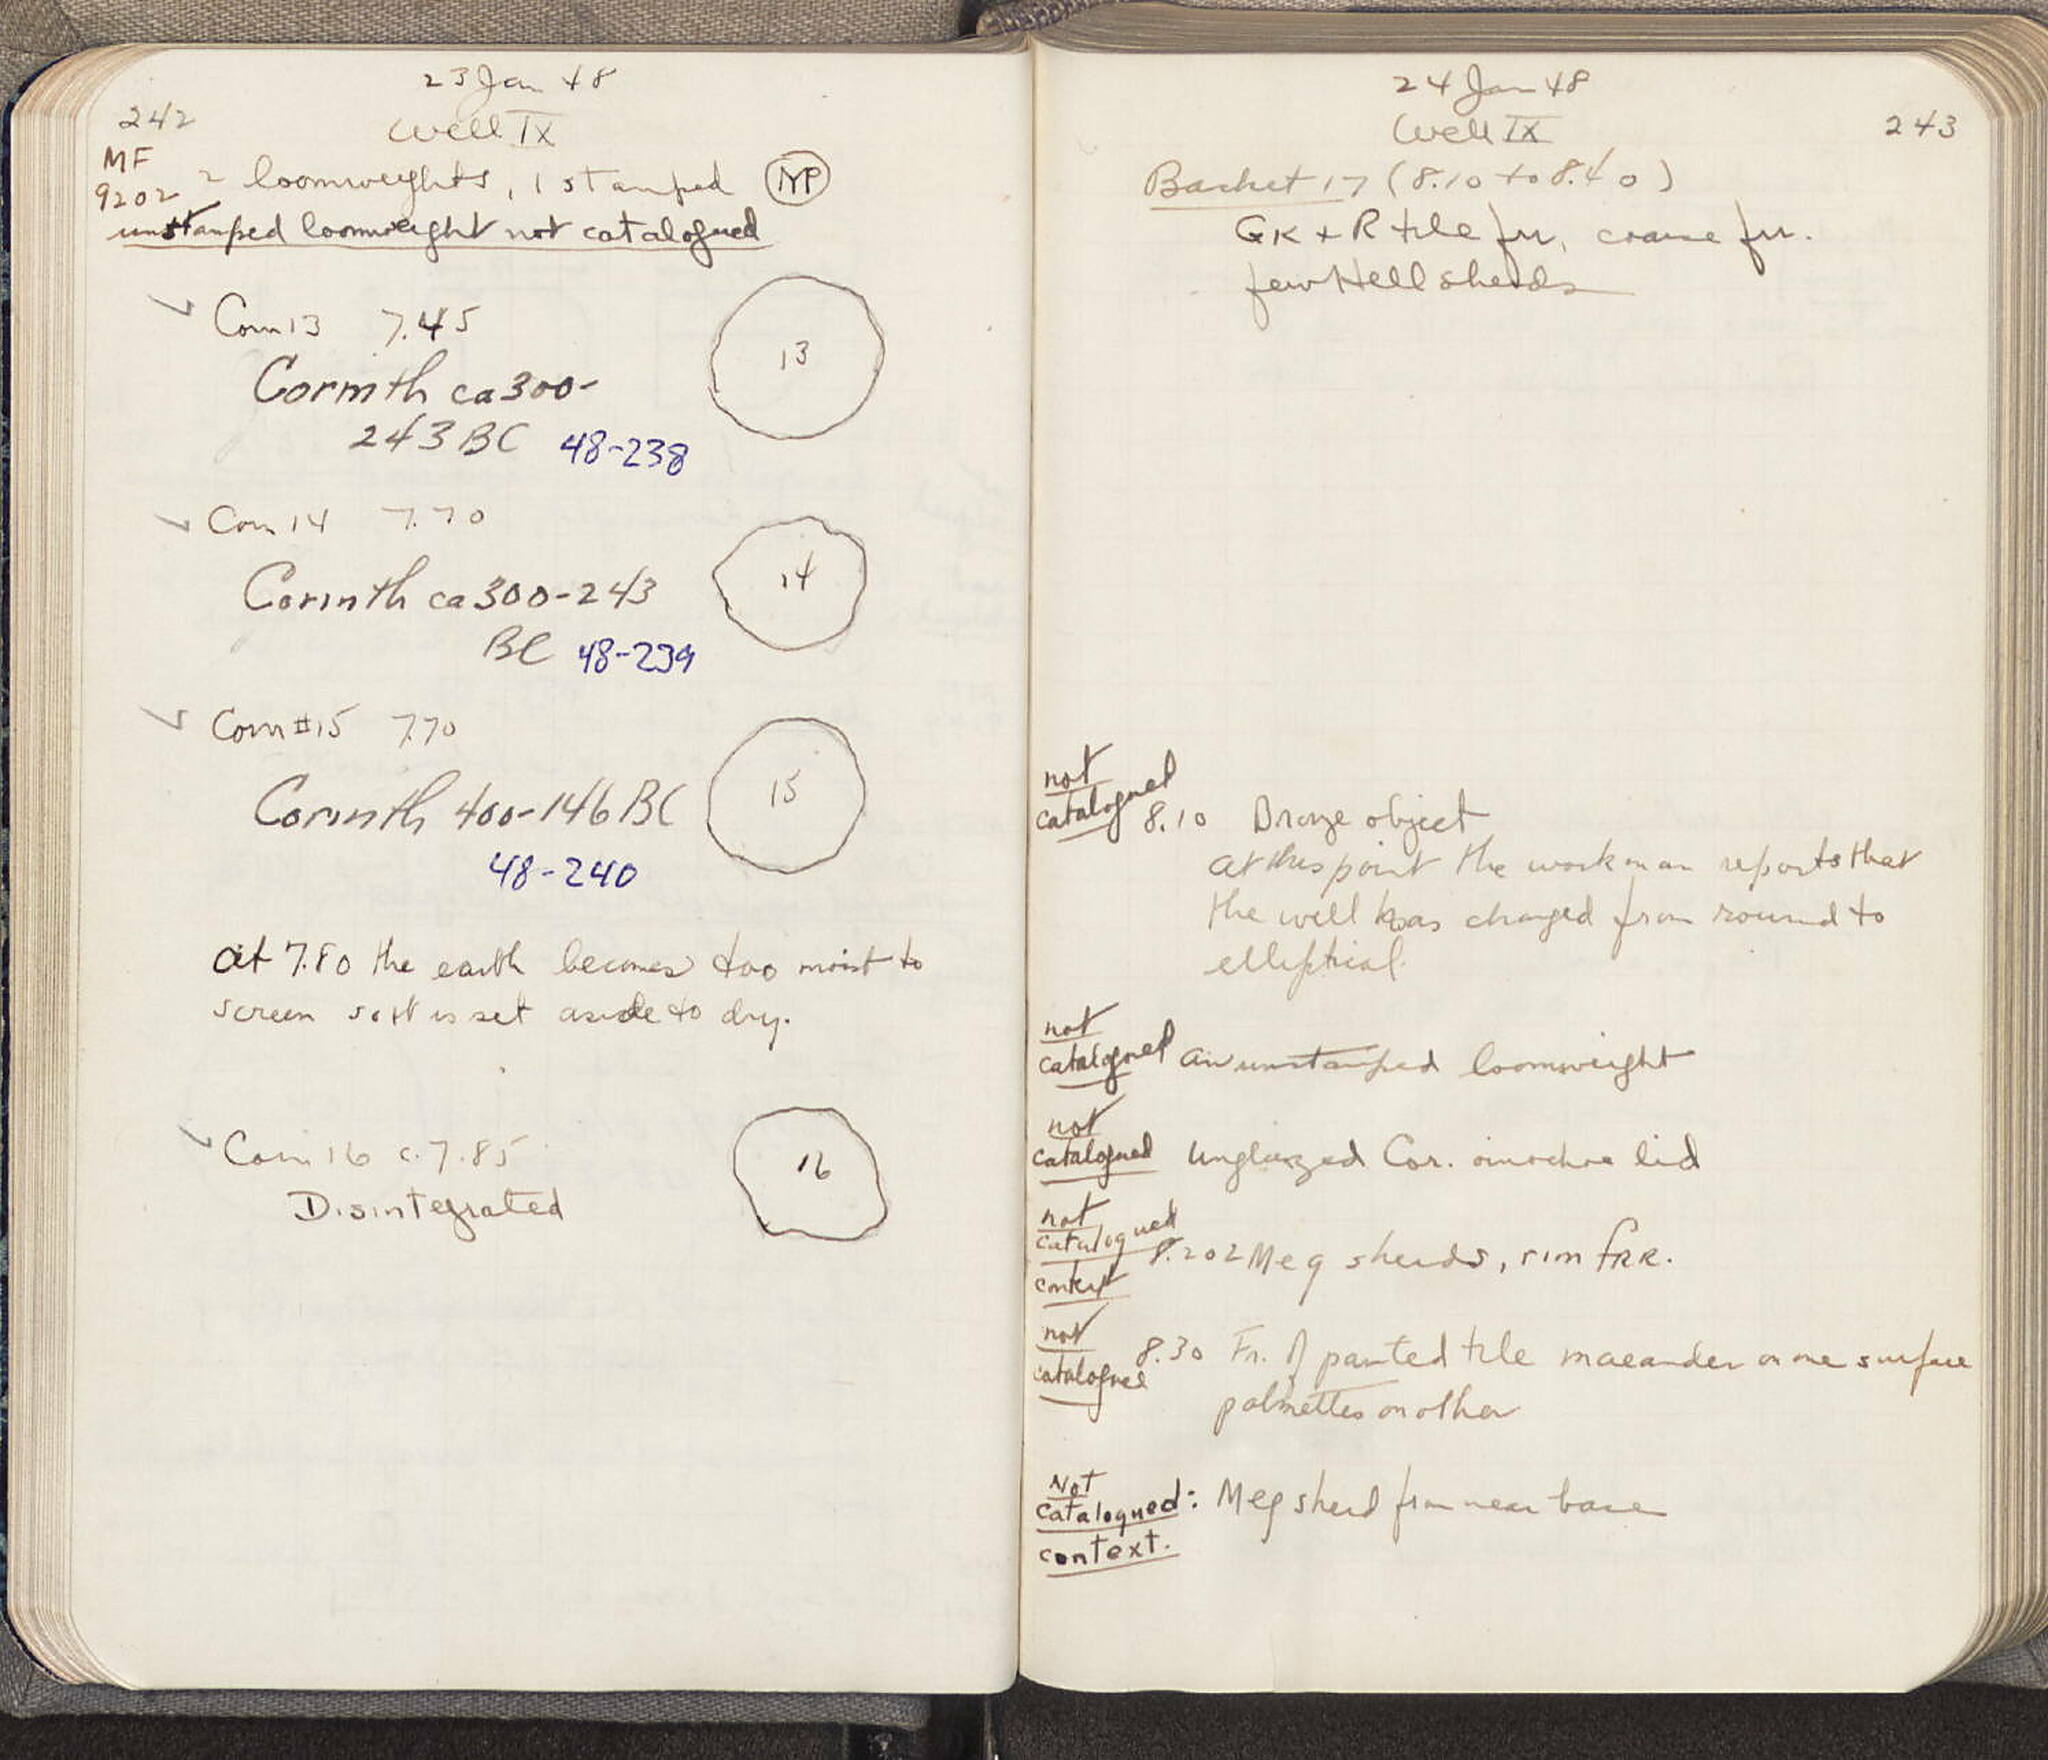 23 Jan 48
242
Well IX
MF
9202
2 loomweights, 1 stamped
unstamped loomweight not catalogued
Coin 13 7.45
13
Corinth ca 300-
243 BC 48-238
Coin 14 7.70
14
Corinth ca 300-243
BC 48-239
Coin #15 7.70
15
Corinth 400-146 BC
48-240
At 7.80 the earth becomes too moist to
screen so it is set aside to dry.
Coin 16 c. 7.85
16
Disintegrated
24 Jan 48
243
Well IX
Basket 17 (8.10 to 8.40)
GK + R tile frr, coarse frr.
few Hell sherds
not
catalogued
8.10 Bronze object
at this point the workman reports that
the well has changed from round to
elliptical.
not
catalogued
an unstamped loomweight
not
catalogued
Unglazed Cor. oinochoe lid
not
catalogued
8.20 2 Meg sherds, rim frr.
context
not
catalogued
8.30 Fr. of painted tile maeander on one surface
palmettes on other
Not
catalogued: Meg sherd from near base
context.